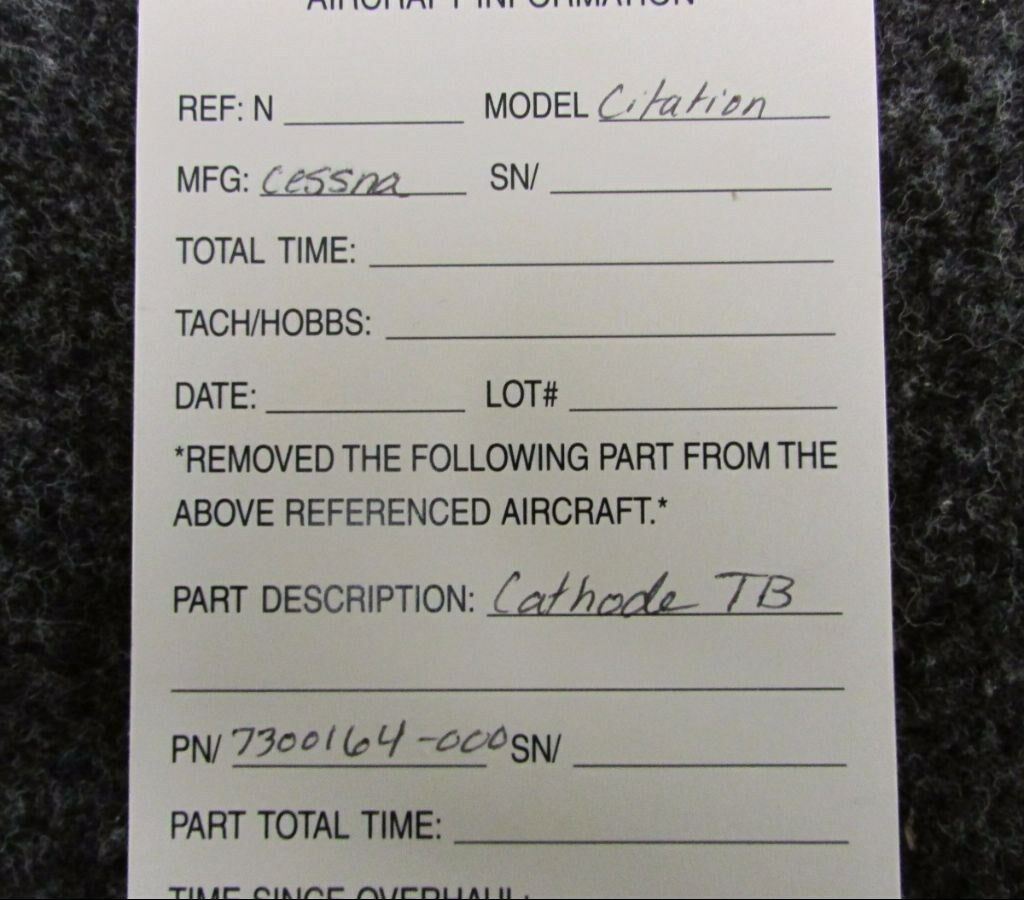 AIRCRAFT INFORMATION
REF: N MODEL Citation
MFG: Cessna SN/
TOTAL TIME:
TACH/HOBBS:
DATE: LOT#
*REMOVED THE FOLLOWING PART FROM THE
ABOVE REFERENCED AIRCRAFT.*
PART DESCRIPTION: Cathode TB
PN/ 7300164-000 SN/
PART TOTAL TIME:
TIME SINCE OVERHAUL: